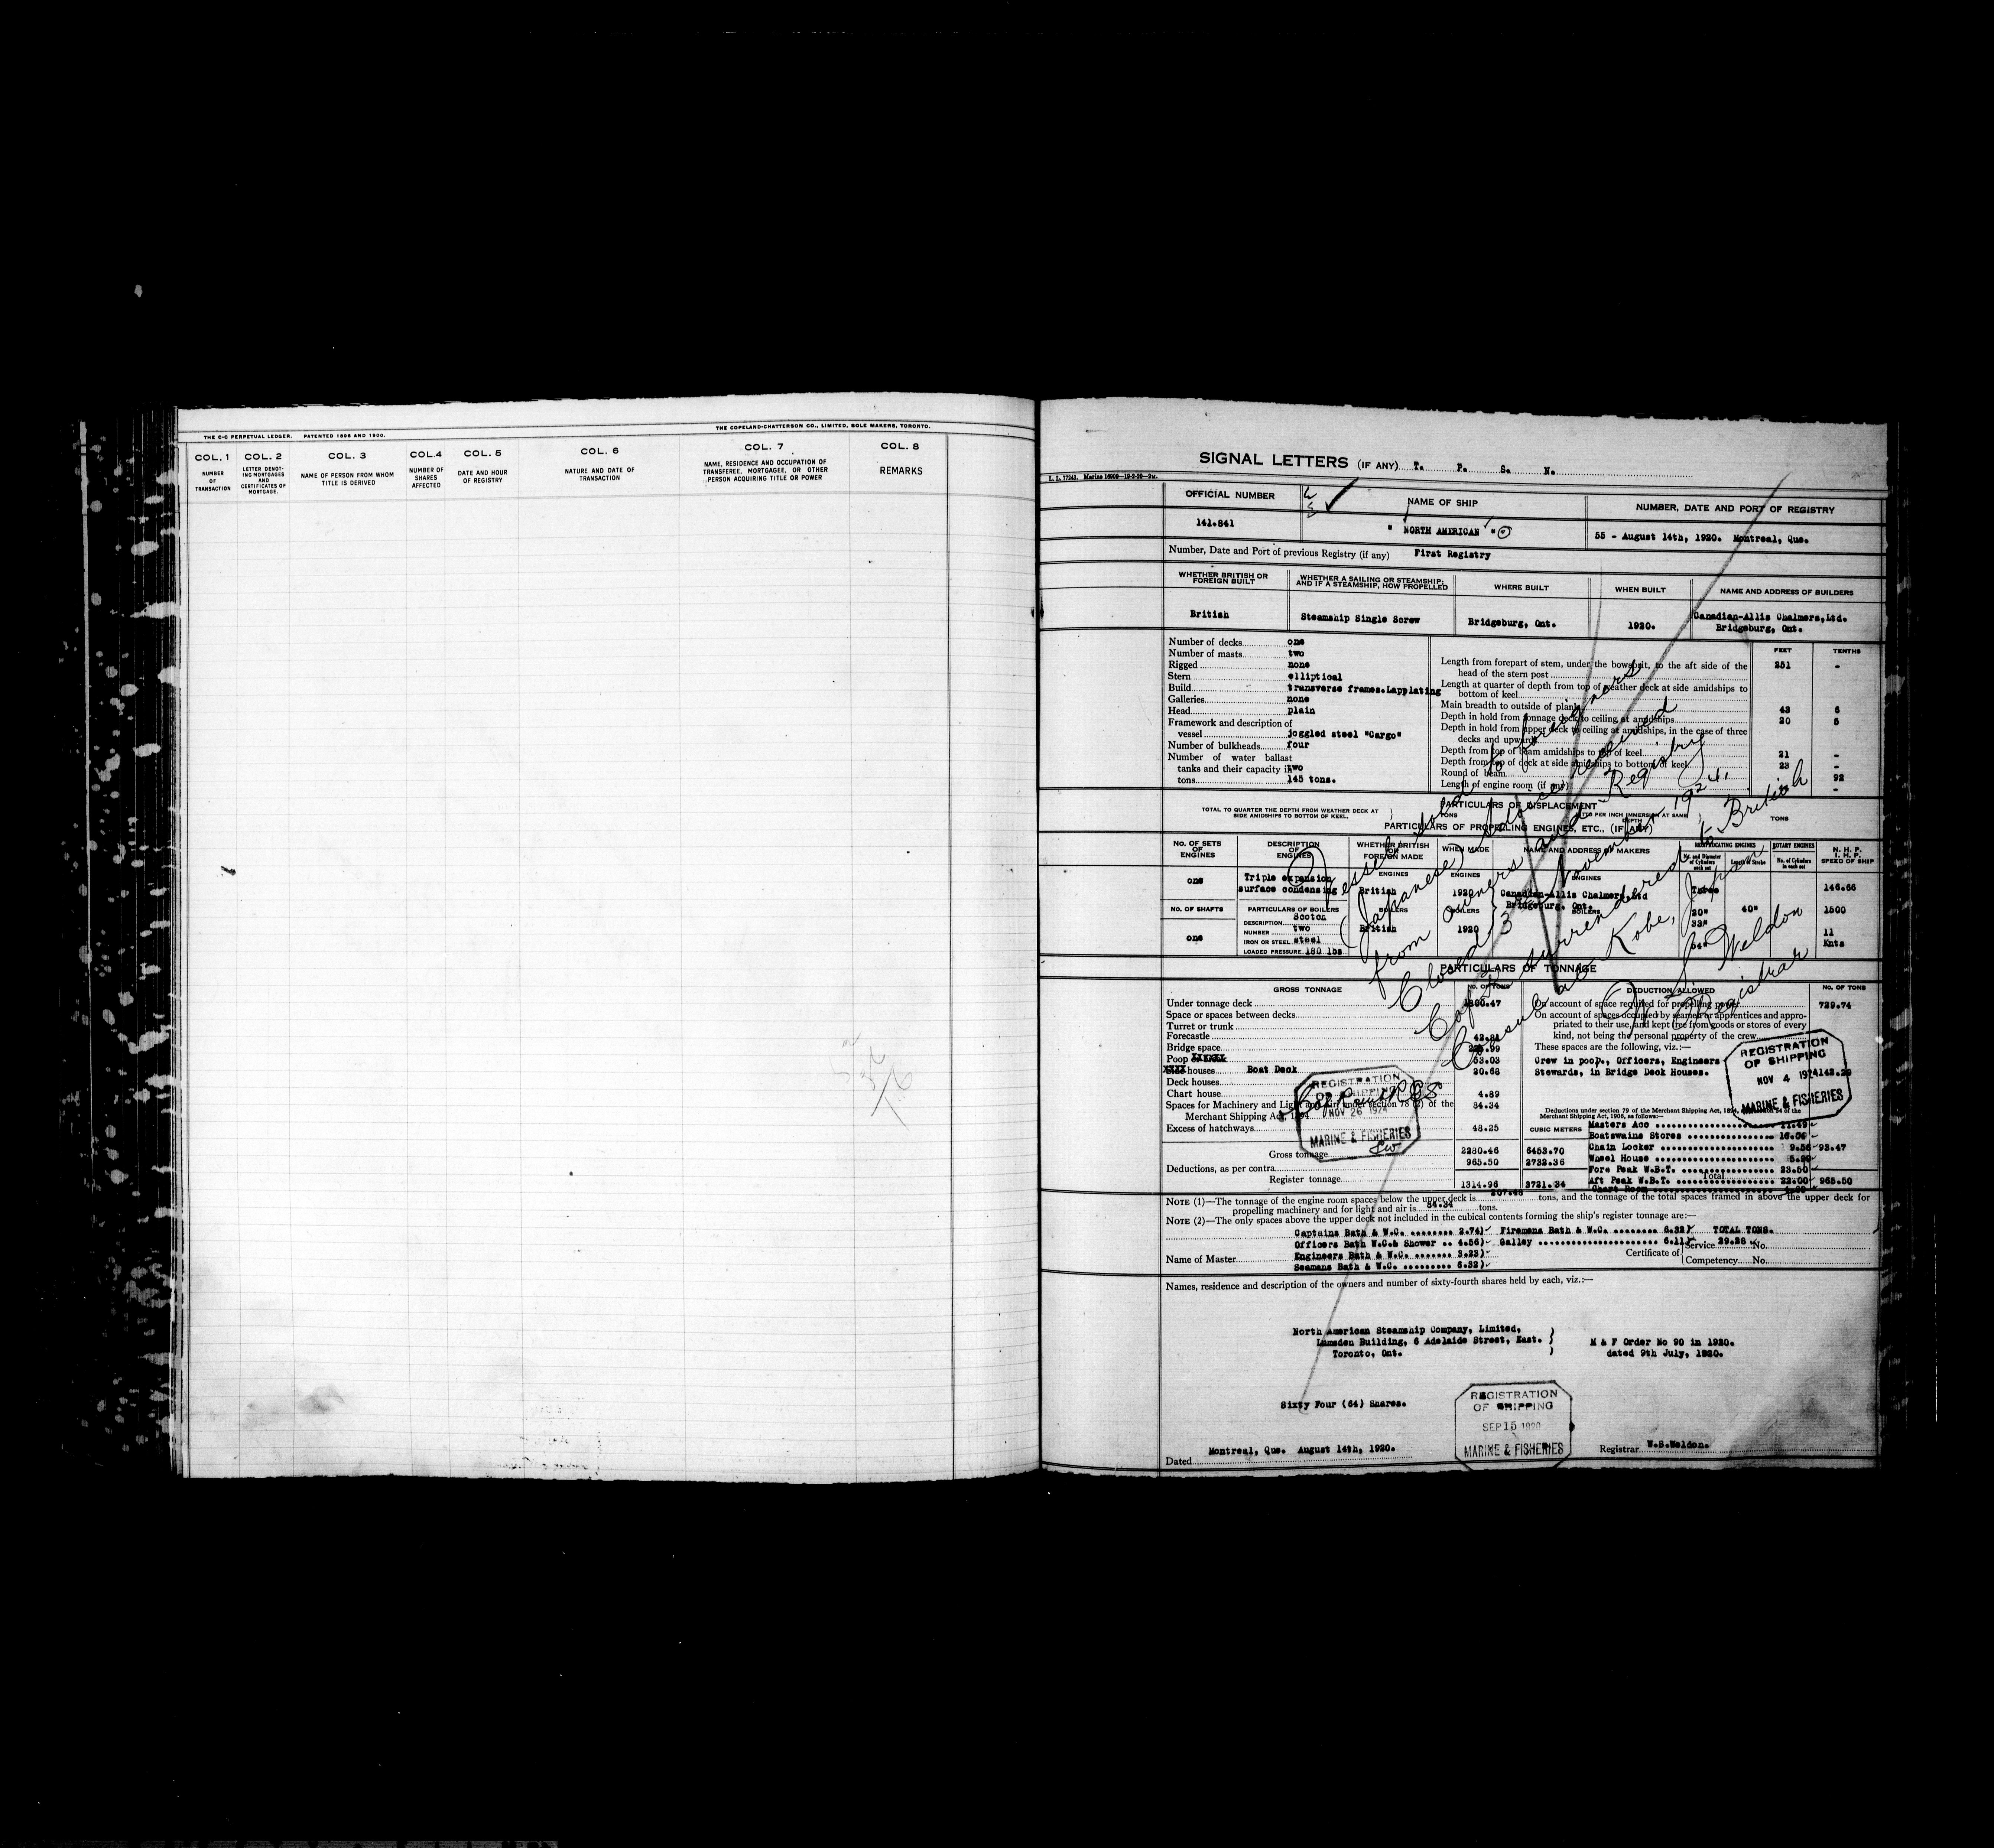 THE C-C PERPETUAL LEDGER. PATENTED 1896 AND 1900.
THE COPELAND-CHATTERSON CO., LIMITED, SOLE MAKERS, TORONTO.
COL. 1 COL. 2 COL. 3 COL. 4 COL. 5 COL. 6 COL. 7 COL. 8
NUMBER OF TRANSACTION
LETTER DENOTING MORTGAGES AND CERTIFICATES OF MORTGAGE.
NAME OF PERSON FROM WHOM TITLE IS DERIVED
NUMBER OF SHARES AFFECTED
DATE AND HOUR OF REGISTRY
NATURE AND DATE OF TRANSACTION
NAME, RESIDENCE AND OCCUPATION OF TRANSFEREE, MORTGAGEE, OR OTHER PERSON ACQUIRING TITLE OR POWER
REMARKS
SIGNAL LETTERS (IF ANY) T. P. S. N.
OFFICIAL NUMBER NAME OF SHIP NUMBER, DATE AND PORT OF REGISTRY
141.841 " NORTH AMERICAN " 55 - August 14th, 1920. Montreal, Que.
Number, Date and Port of previous Registry (if any) First Registry
WHETHER BRITISH OR FOREIGN BUILT
WHETHER A SAILING OR STEAMSHIP; AND IF A STEAMSHIP, HOW PROPELLED
WHERE BUILT WHEN BUILT NAME AND ADDRESS OF BUILDERS
British Steamship Single Screw Bridgeburg, Ont. 1920. Canadian-Allis Chalmers,Ltd. Bridgeburg, Ont.
FEET TENTHS
Number of decks one
Number of masts two
Rigged none
Stern elliptical
Build transverse frames.Lapplating
Galleries none
Head plain
Framework and description of
vessel joggled steel "Cargo"
Number of bulkheads four
Number of water ballast
tanks and their capacity in two
tons 145 tons.
Length from forepart of stem, under the bowsprit, to the aft side of the head of the stern post 251 -
Length at quarter of depth from top of weather deck at side amidships to bottom of keel
Main breadth to outside of plank 43 6
Depth in hold from tonnage deck to ceiling at amidships 20 5
Depth in hold from upper deck to ceiling at amidships, in the case of three decks and upwards
Depth from top of beam amidships to top of keel 21 -
Depth from top of deck at side amidships to bottom of keel 23 -
Round of beam 92
Length of engine room (if any) -
PARTICULARS OF DISPLACEMENT
TOTAL TO QUARTER THE DEPTH FROM WEATHER DECK AT SIDE AMIDSHIPS TO BOTTOM OF KEEL. TONS
DITTO PER INCH IMMERSION AT SAME DEPTH TONS
PARTICULARS OF PROPELLING ENGINES, ETC., (IF ANY)
No. OF SETS OF ENGINES
DESCRIPTION OF ENGINES
WHETHER BRITISH OR FOREIGN MADE
WHEN MADE
NAME AND ADDRESS OF MAKERS
RECIPROCATING ENGINES ROTARY ENGINES
No. and Diameter of Cylinders in each set Length of Stroke No. of Cylinders in each set
N. H. P. I. H. P. SPEED OF SHIP
ENGINES ENGINES ENGINES
one Triple expansion surface condensing British 1920 Canadian-Allis Chalmers,Ltd Bridgeburg, Ont. Three 146.66
No. OF SHAFTS PARTICULARS OF BOILERS BOILERS BOILERS BOILERS 20" 40" 1500
DESCRIPTION Scotch
NUMBER two British 1920 33"
one IRON OR STEEL steel 54" 11 Knts
LOADED PRESSURE 180 lbs
PARTICULARS OF TONNAGE
GROSS TONNAGE NO. OF TONS DEDUCTION ALLOWED NO. OF TONS
Under tonnage deck 1800.47
Space or spaces between decks
Turret or trunk
Forecastle
Bridge space
Poop 53.03
houses Boat Deck 20.68
Deck houses
Chart house 4.89
Spaces for Machinery and Light and air under section 78 (2) of the Merchant Shipping Act, 1894 84.34
Excess of hatchways 48.25
CUBIC METERS
Gross tonnage 2280.46 6453.70
Deductions, as per contra 965.50 2732.36
Register tonnage 1314.96 3721.34
On account of space required for propelling power 729.74
On account of spaces occupied by seamen or apprentices and appropriated to their use, and kept free from goods or stores of every kind, not being the personal property of the crew
These spaces are the following, viz.:—
Crew in poop., Officers, Engineers
Stewards, in Bridge Deck Houses. 142.29
Deductions under section 79 of the Merchant Shipping Act, 1894, and section 54 of the Merchant Shipping Act, 1906, as follows:—
Masters Acc 11.49
Boatswains Stores
Chain Locker 9.56 93.47
Wheel House
Fore Peak W.B.T. 23.50
Total
Aft Peak W.B.T. 22.00 965.50
Chart Room
NOTE (1)—The tonnage of the engine room spaces below the upper deck is 207.48 tons, and the tonnage of the total spaces framed in above the upper deck for propelling machinery and for light and air is 84.34 tons.
NOTE (2)—The only spaces above the upper deck not included in the cubical contents forming the ship's register tonnage are:—
Captains Bath & W.C. 2.74) Firemans Bath & W.C. 6.32) TOTAL TONS.
Officers Bath W.C.& Shower 4.56) Galley 6.11) 29.28
Engineers Bath & W.C. 3.23)
Seamans Bath & W.C. 6.32)
Name of Master Certificate of Service No.
Competency No.
Names, residence and description of the owners and number of sixty-fourth shares held by each, viz.:—
North American Steamship Company, Limited,
Lumsden Building, 6 Adelaide Street, East.
Toronto, Ont.
M & F Order No 90 in 1920.
dated 9th July, 1920.
Sixty Four (64) Shares.
Dated Montreal, Que. August 14th, 1920.
Registrar W.B.Weldon.
Vessel sold to foreigners
(Japanese) Advice received
from owners and Registry
Closed 3 November 1924.
Cert surrendered to British
Consul at Kobe, Japan
Weldon
Registrar
REGISTRATION OF SHIPPING
NOV 4 1924
MARINE & FISHERIES
REGISTRATION OF SHIPPING
NOV 26 1924
MARINE & FISHERIES
REGISTRATION OF SHIPPING
SEP 15 1920
MARINE & FISHERIES